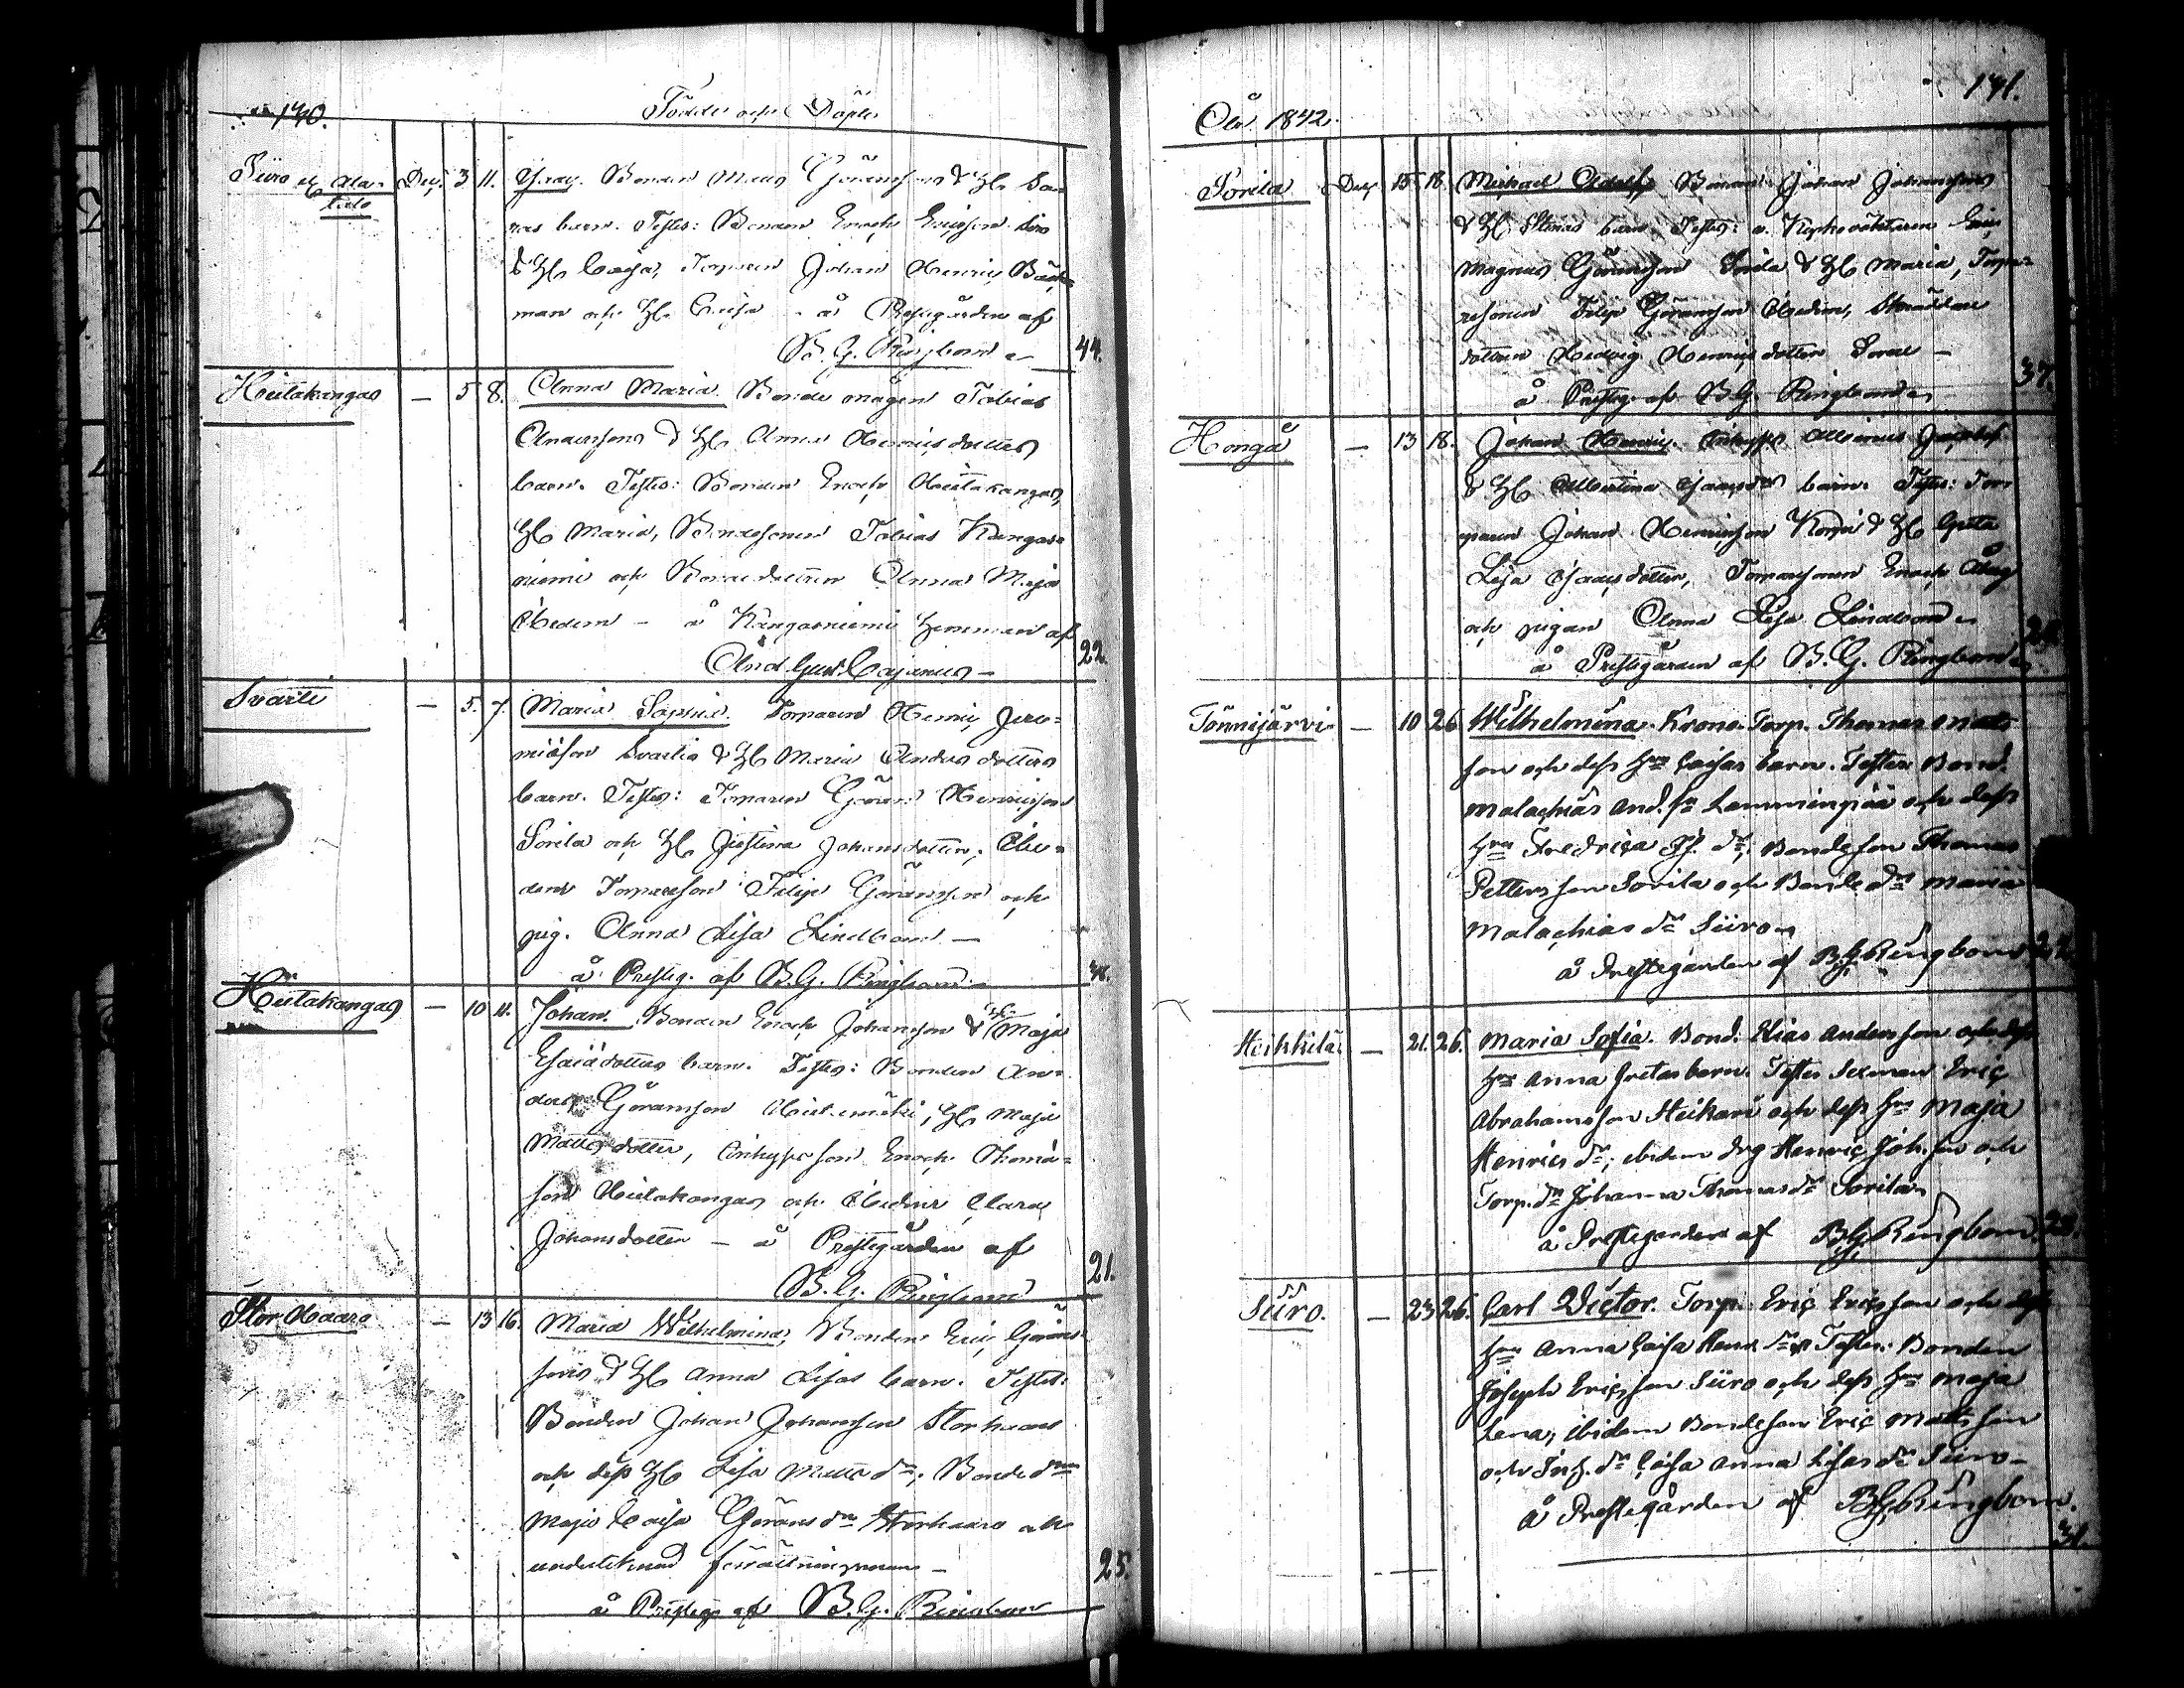 140.
Födde och Döpte
Siiro et Ala-
talo
Dec. 3 11. Isaac. Bonden Mats Göransons & H. Sa-
ras barn. Testes: Bonden Enoch Ericson Siro
& H. Caisa, Torparen Johan Henric Back-
man och H. Caisa - å Prestgården af
B. G. Ringbom
44.
Hiitakangas — 5 8. Anna Maria. Bonde mågen Tobias
Andersons & H. Anna Henricsdotters
barn. Testes: Bonden Enoch Hiitakangas,
H. Maria, Bondesonen Tobias Kangas-
niemi och Bondedottren Anna Maja
Ibidem - å Kangasniemi hemman af
And. Gust. Cajanus —
22.
Svarti — 5. 7. Maria Sophia. Torparen Henric Jere-
miason Svartis & H. Maria Anders dotters
barn. Testes: Torparen Göran Henricson
Sorila och H. Justina Johansdotter,
Torpareson Filip Göranson och
pig. Anna Lisa Lindbom —
å Presteg. af B. G. Ringbom
Hiitakangas — 10 11. Johan. Bonden Enoch Johanson & H. Maja
Esaiædotters barn. Testes: Bonden An-
ders Göranson H. Maja
Mattsdotter, Inhyses son Enoch Thomæ-
son Hiitakangas och Ibidem Clara
Johansdotter — å Prestegården af
B. G. Ringbom
21.
Stor Haaro — 13 16. Maria Wilhelmina, Bonden Eric Görans-
sons & H. Anna Lisas barn. Testes:
Bonden Johan Johanson Storhaaro
och dess H. Lisa Matts dr; Bonde drn
Maja Caisa Görans dr Storhaaro och
undertecknad förrättningsman —
å Presteg. af B. G. Ringbom
25.
141.
Año 1842.
Sorila Dec. 15 18. Michael Adolf, Bonden Johan Johansons
& H. Stinas barn. Testes: Eric
Magnus Göranson Sorila & H. Maria, Torpa-
resonen Filip Göranson Ibidem,
dottren Hedvig Henricsdotter
å Presteg. af B. G. Ringbom
37.
Hongå — 13 18. Johan Henric. Inhyses
& H. Albertina Isaacs drs barn. Testes: Tor-
paren Johan Henricson & H. Greta
Lisa Isaacsdotter, Torparesonen Enoch
och pigan Anna Lisa Lindbom
å Prestegården af B. G. Ringbom
Tönnijärvi — 10 26 Wilhelmina. Krono-Torp. Thomas Mat-
son och dess hru Caisas barn. Testes Bond.
Malachias And.sn Lamminpää och dess
hru Fredrica dr; Bondeson Thomas
Petterson Sorila och Bonde dr Maria
Malachias dr Siiro.
å Prestegården af BGRingbom
Heikkilä — 21. 26. Maria Sofia. Bond. Elias Anderson och dess
hru Anna Gretas barn. Testes Sexman Eric
Abrahamsson Heikari och dess hru Maja
Henrics dr; ibidem drg Henric Joh.son och
Torp. dr Johanna Thomas dr Sorila
å Prestegården af BGRingbom.
Siiro. — 23 26. Carl Victor. Torp. Eric Ericson och dess
hru Anna Caisa Henr. drs Testes: Bonden
Joseph Ericsson Siiro och dess hru Maja
Lena; ibidem Bondeson Eric Matsson
och Inh. dr Caisa Anna Lisas dr Siiro -
å Prestegården af BGRingbom.
31.